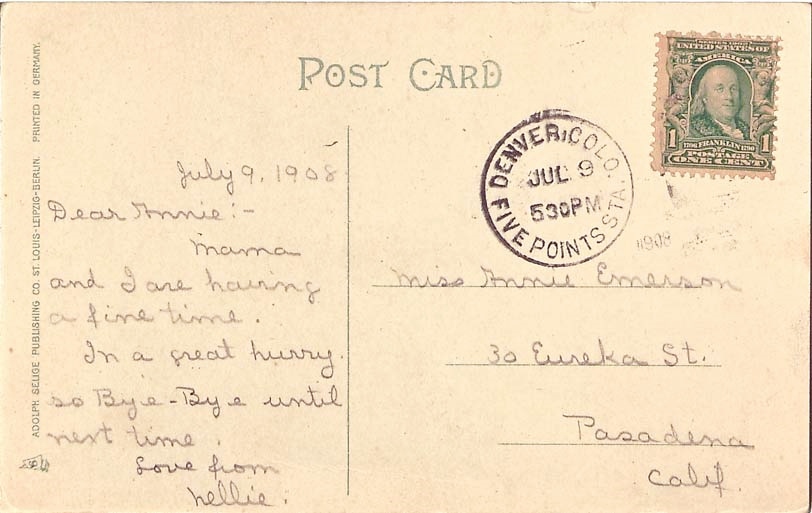 POST CARD
SERIES 1902
UNITED STATES OF
AMERICA
1706 FRANKLIN 1790
POSTAGE
1 ONE CENT 1
DENVER, COLO.
JUL 9
530PM
FIVE POINTS STA.
1908
July 9, 1908
Dear Annie:-
Mama
and I are having
a fine time.
In a great hurry.
so Bye-Bye until
next time.
Love from
Nellie.
Miss Annie Emerson
30 Eureka St.
Pasadena
Calif.
ADOLPH SELIGE PUBLISHING CO. ST. LOUIS-LEIPZIG-BERLIN. PRINTED IN GERMANY.